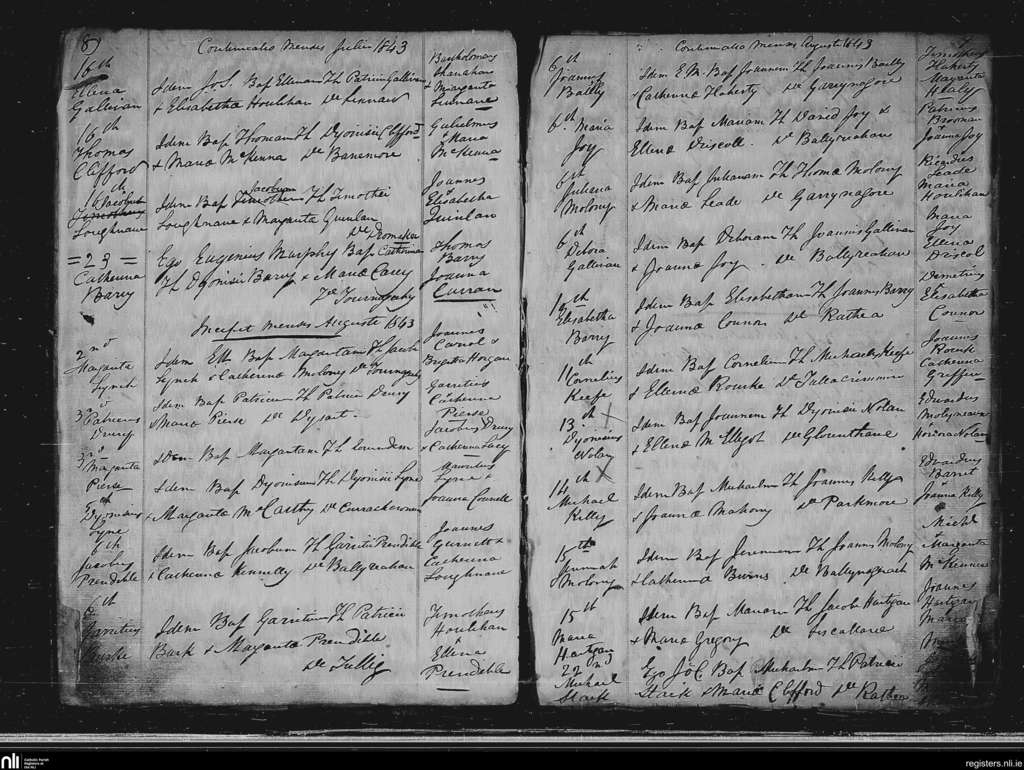 8
Continuatio Mensis Julii 1843
16th
Ellena
Gallivan
Idem Jos. Bap Ellenam Th Patricii Gallivan
& Elisabetha Houlihan de
Bartholomeus
Shanahan
& Margarita
16th
Thomas
Clifford
Idem Bap Thomam Th Dyonisii Clifford
& Maria McKenna de Banemore
Gulielmus
& Maria
McKenna
16th Jacobus
Timotheus
Loughnane
Idem Bap Timotheum Jacobum Th Timothei
Loughnane & Margarita Quinlan
de
Joannes
Elisabetha
Quinlan
= 23 =
Catherina
Barry
Ego Eugenius Murphy Bap Catherinam
Th Dyonisii Barry & Maria Carey
de Tournageehy
Thomas
Barry
Joanna
Curran
Incipit mensis Augusti 1843
2nd
Margarita
Lynch
Idem EM Bap Margaritam Th Jacobi
Lynch & Catherina Molony de Tournageehy
Joannes
Carrol &
Brigitta Horgan
3d Patricius
Drury
Idem Bap Patricium Th Patricii Drury
& Maria Pierse de Dysart
Garritius
Catherina
Pierse
3d
Margarita
Pierse
Idem Bap Margaritam Th
Jacobus Drury
& Catherina Lacy
6th
Dyonisius
Lyne
Idem Bap Dyonisium Th Dyonisii Lyne
& Margarita McCarthy de
Lyne &
Joanna Connell
6th
Jacobus
Prendible
Idem Bap Jacobum Th Garritii Prendible
& Catherina Kennelly de Ballyreahan
Joannes
Catherina
Loughnane
6th
Garritius
Burke
Idem Bap Garritum Th Patricii
Burk & Margarita Prendible
de Tullig
Timotheus
Houlihan
&
Ellena
Prendible
Continuatio Mensis August 1843
6th
Joannes
Bailly
Idem E.M. Bap Joannem Th Joannis Bailly
& Catherina Flaherty de Garrynagore
Timotheus
Flaherty
Margarita
Healy
6th Maria
Joy
Idem Bap Mariam Th David Joy &
Ellena Driscoll de Ballyreahan
Patricius
Brosnan
Joanna Joy
6th
Juliana
Molony
Idem Bap Julianam Th Thoma Molony
& Maria Leade de Garrynagore
Ricardus
Leade
Maria
Houlihan
6th
Debora
Gallivan
Idem Bap Deboram Th Joannis Gallivan
& Joanna Joy de Ballyreahan
Maria
Joy
Ellena
Driscol
Elisabetha
Barry
Idem Bap Elisabetham Th Joannis Barry
& Joanna Connor de Rathea
Demetrius
&
Elisabetha
Connor
11th
Cornelius
Keefe
Idem Bap Cornelium Th Michaelis Keefe
& Ellena Rourke de Tullacrimmin
Joannes
Rourk
Catherina
Griffin
13th
Dyonisius
Nolan
Idem Bap Joannem Th Dyonisii Nolan
& Ellena McElligot de Glounthane
Edwardus
Molyneaux
Honora Nolan
14th
Michael
Kelly
Idem Bap Michaelem Th Joannis Kelly
& Joanna Mahony de Parkmore
Edvardus
Barret
Joanna Kelly
15th
Jeremiah
Molony
Idem Bap Jeremiam Th Joannis Molony
& Catherina Burns de
Michl
&
Margarita
McKenna
15th
Maria
Hartgan
Idem Bap Mariam Th Jacobi Hartgan
& Maria Gregory de Liscullane
Joannes
Hartgan
Maria
22nd
Michael
Stack
Ego JoC Bap Michaelem Th Patricii
Stack & Maria Clifford de Rathea
nli
Catholic Parish
Registers at
the NLI
registers.nli.ie